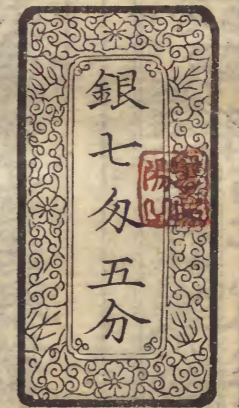 銀七匁五分